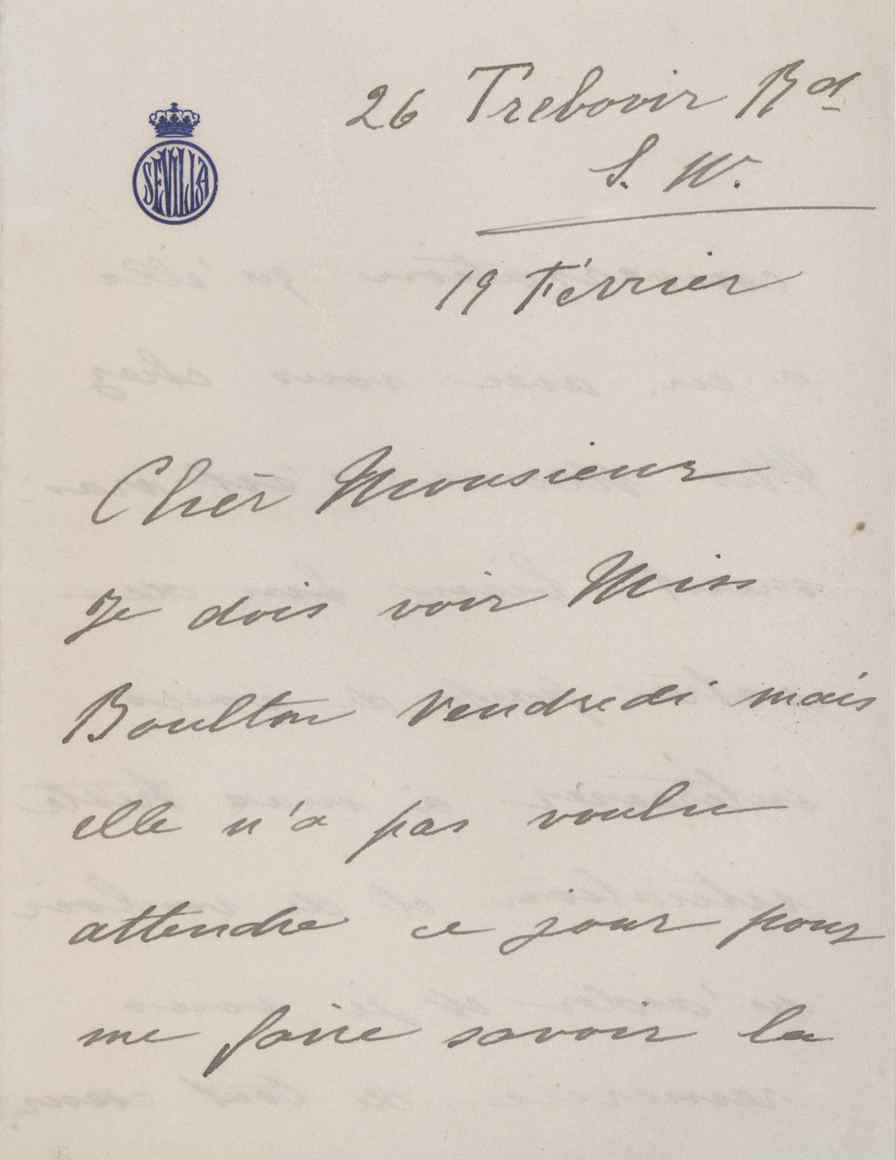 SEVILLA
26 Trebovir Rd
S. W.
19 Février
Cher Monsieur
Je dois voir Miss
Boulton Vendredi mais
elle n'a pas voulu
attendre ce jour pour
me faire savoir la